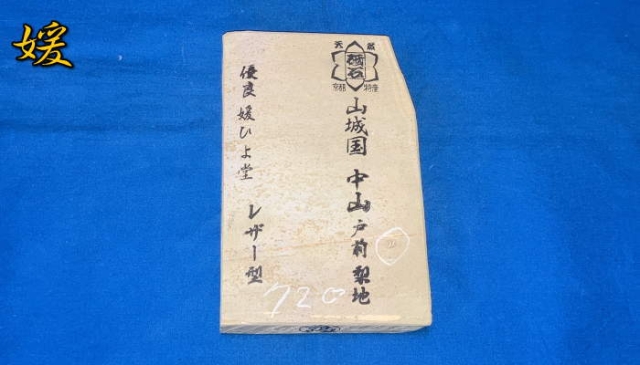 媛
天然
砥石
京都 特産
山城国 中山戸前梨地
優良媛ひよ堂 レザー型
720